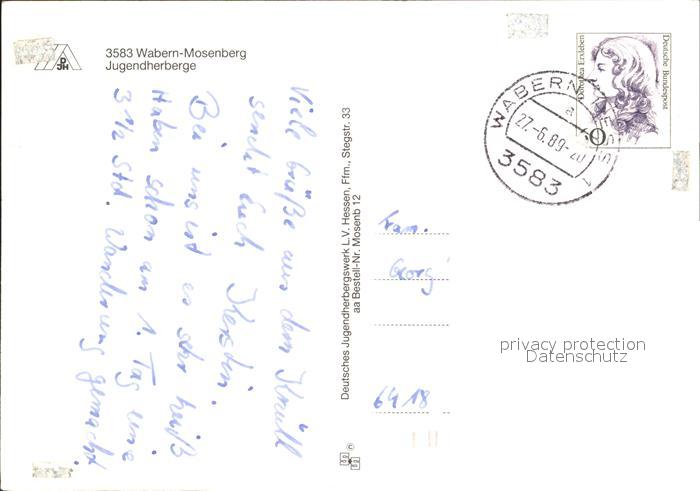 3583 Wabern-Mosenberg
Jugendherberge
DJH
Viele Grüße aus dem Knüll
sendet Euch Kerstin.
Bei uns ist es sehr heiß
Haben schon am 1. Tag eine
3 1/2 Std. Wanderung gemacht
Deutsches Jugendherbergswerk L.V. Hessen, Ffm., Stegstr. 33
aa Bestell-Nr. Mosenb 12
Dorothea Erxleben
Deutsche Bundespost
WABERN
a
27.-6.89-20
3583 1
Fam.
Georg
6418
privacy protection
Datenschutz